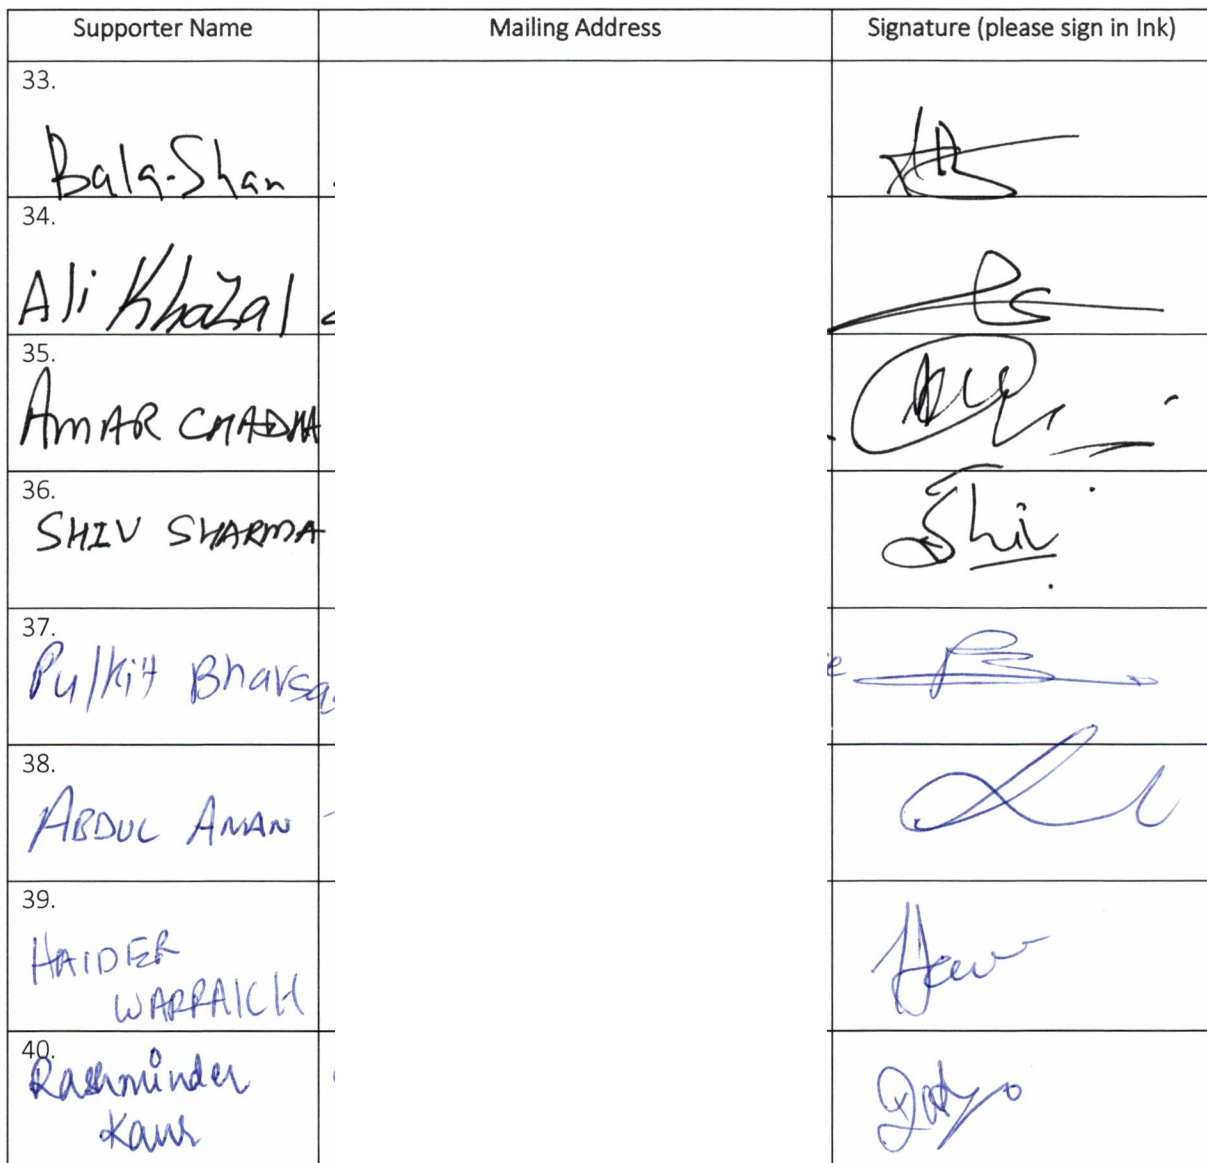 Supporter Name Mailing Address Signature (please sign in Ink)
33.
Bala-Shan
34.
Ali Khazal
35.
AMAR CHADHA
36.
SHIV SHARMA Shiv
37.
Pulkit Bhavsa
e
38.
ABDUL AMAN
39.
HAIDER
WARRAICH
40.
Rashminder
Kaur